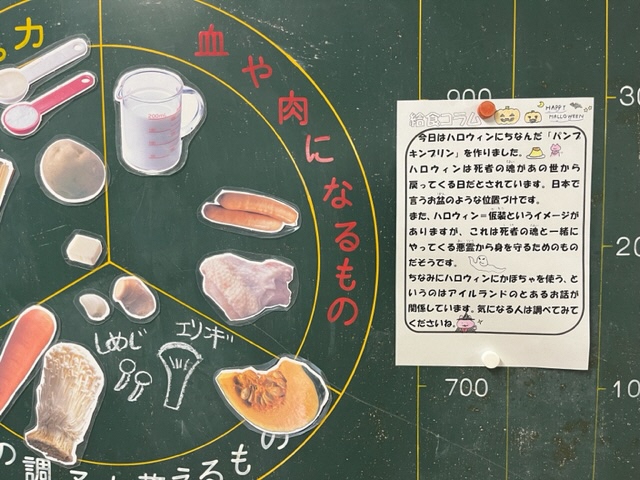 力
血や肉になるもの
しめじ
エリンギ
の調子を整えるもの
900
30
20
700
10
給食コラム
HAPPY
HALLOWEEN
今日はハロウィンにちなんだ「パンプ
キンプリン」を作りました。
ハロウィンは死者の魂があの世から
戻ってくる日だとされています。日本で
言うお盆のような位置づけです。
また、ハロウィン＝仮装というイメージが
ありますが、これは死者の魂と一緒に
やってくる悪霊から身を守るためのもの
だそうです。
ちなみにハロウィンにかぼちゃを使う、と
いうのはアイルランドのとあるお話が
関係しています。気になる人は調べてみて
くださいね。